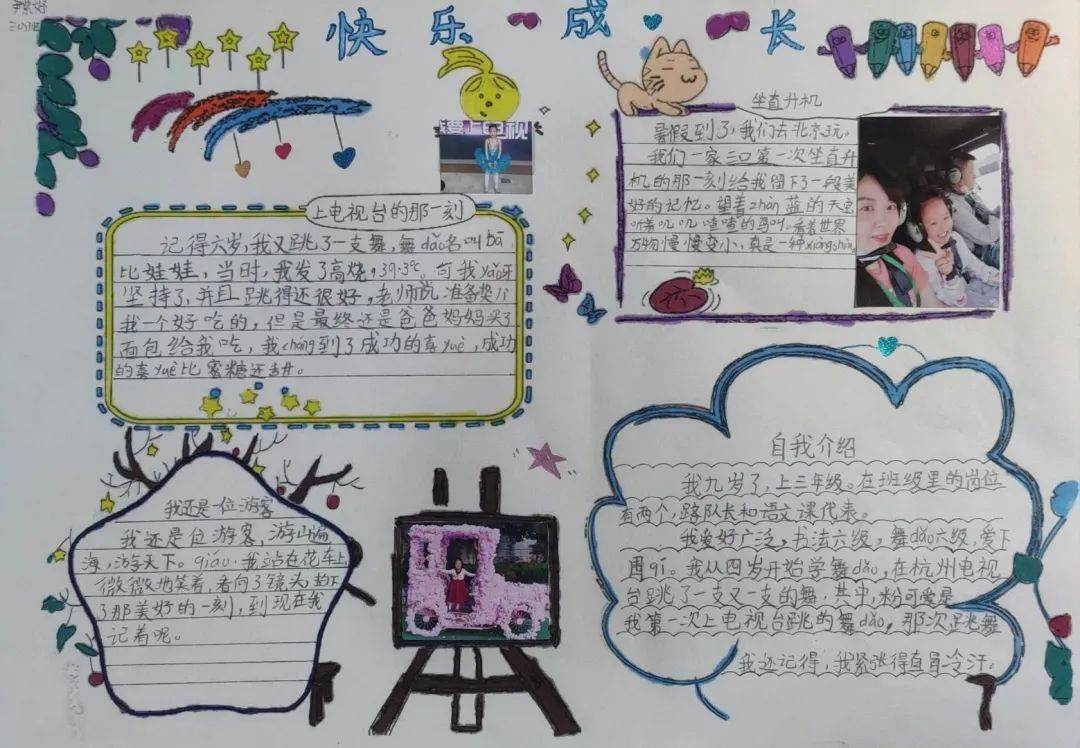 快乐成长
我要上电视
上电视台的那一刻
记得六岁,我又跳了一支舞,舞dǎo名叫bā
比娃娃,当时,我发了高烧,39.3℃。可我yǎo牙
坚持了,并且跳得还很好,老师说准备奖
我一个好吃的,但是最终还是爸爸妈妈买了
面包给我吃,我cháng到了成功的喜yuè,成功
的喜yuè比蜜糖还甜。
坐直升机
暑假到了,我们去北京玩。
我们一家三口第一次坐直升
机的那一刻给我留下了一段美
好的记忆。望着zhàn蓝的天空
听着叽叽喳喳的鸟叫,看着世界
万物慢慢变小,真是一种xiǎngshòu
我还是一位游客
我还是位游客,游山遍
海,访字天下。qiáo,我站在花车上
微微地笑着,看向了镜头,拍下
了那美好的一刻,到现在我
记着呢。
自我介绍
我九岁了,上三年级。在班级里的岗位
有两个,路队长和语文课代表。
我爱好广泛,书法六级,舞dǎo六级,爱下
围qí。我从四岁开始学舞dǎo,在杭州电视
台跳了一支又一支的舞,其中,粉可爱是
我第一次上电视台跳的舞dǎo,那次跳舞
我还记得,我紧张得直冒冷汗。